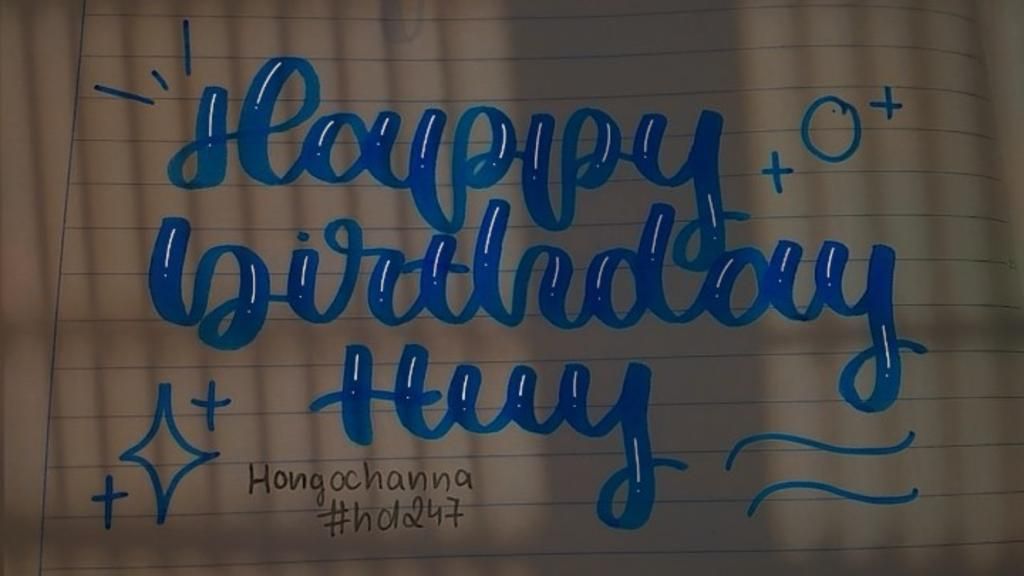 Happy
birthday
Huy
Hongochanna
#hd247